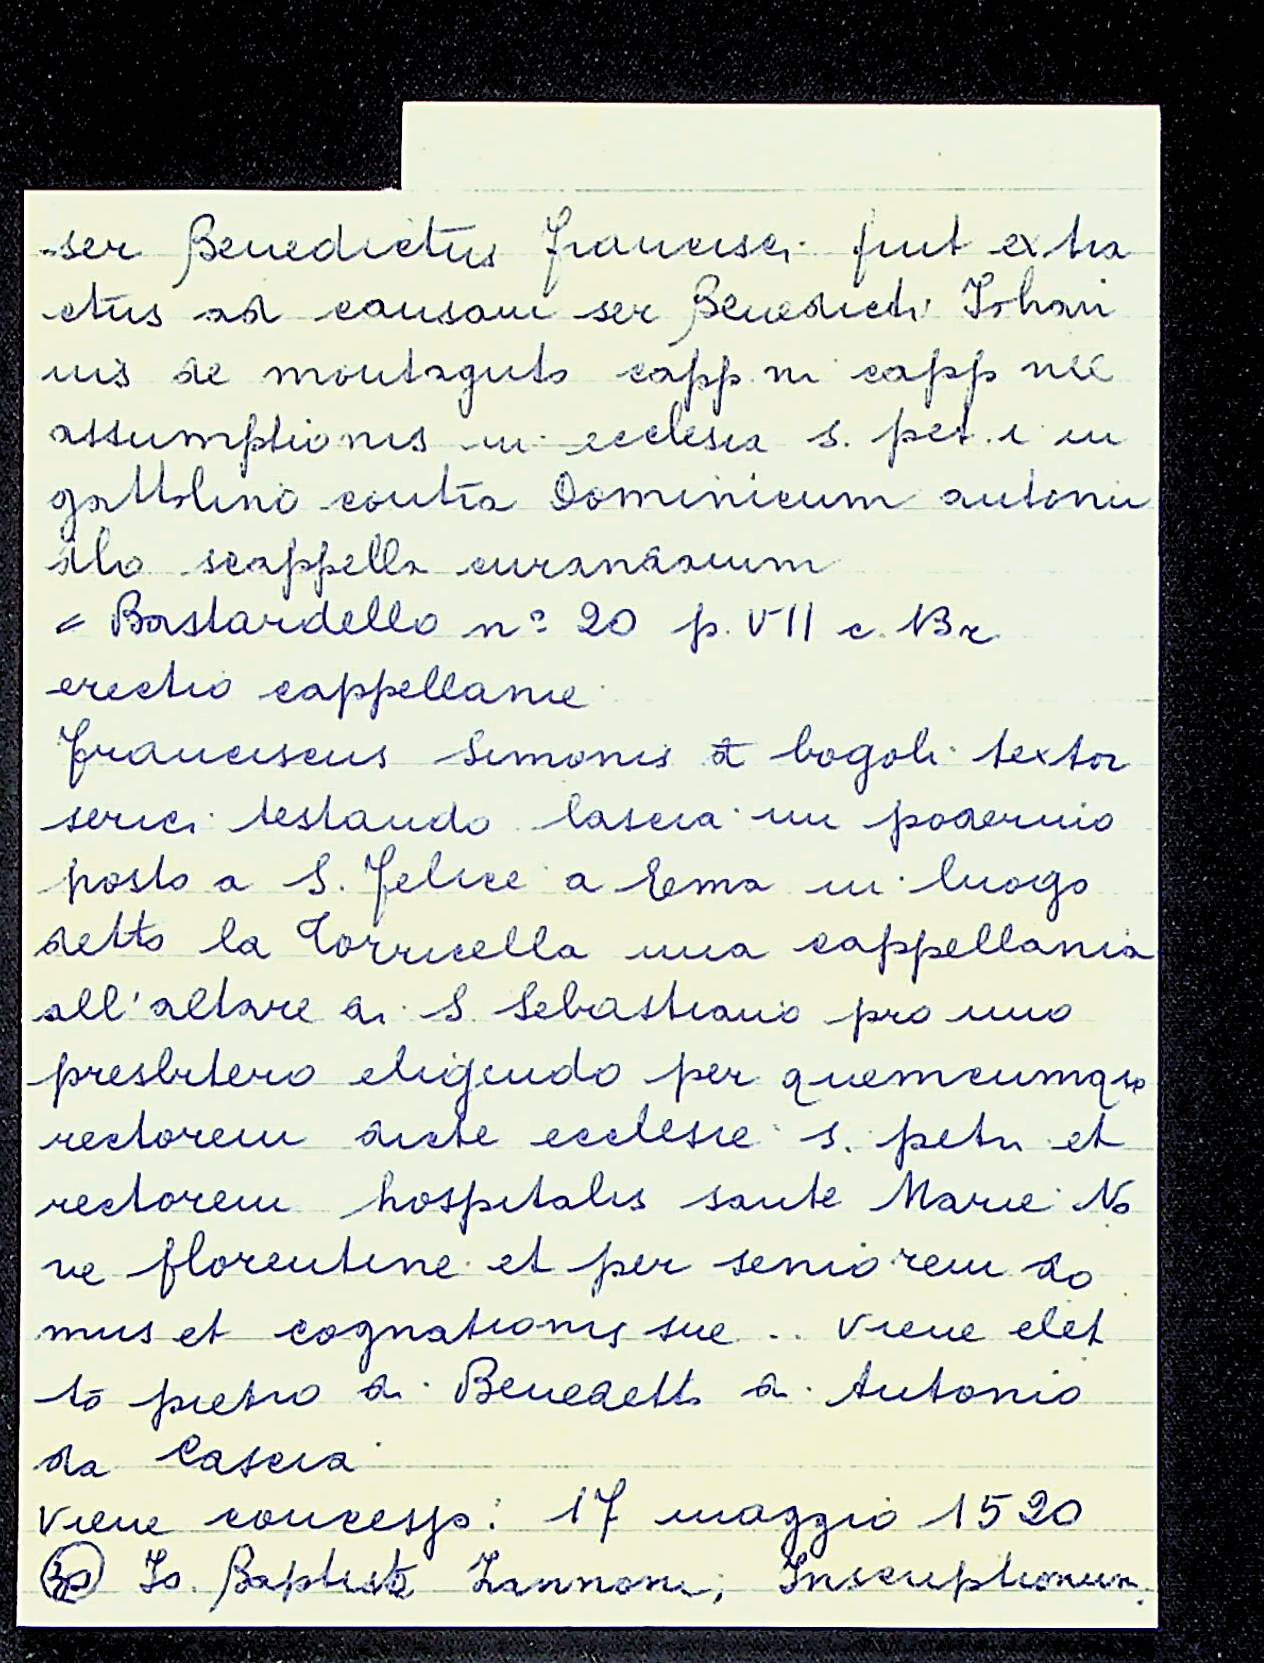 -ser Benedictus Francisci fuit extra
ctus ad causam ser Benedicti Johan
nis de montaguto capp.ni capp
assumptionis in ecclesia s. petri in
gattolino contra Dominicum antonii
dlo scappella curandarum
= Bastardello n° 20 p. VII c. 13r
erectio cappellanie
Franciscus Simonis bogoli textor
serici testando lascia un poderino
posto a S. Felice a Ema in luogo
detto la Torricella una cappellania
all'altare di S. Sebastiano pro uno
presbitero eligendo per quemcumque
rectorem dicte ecclesie s. petri et
rectorem hospitalis sante Marie No
ve florentine et per seniorem do
mus et cognationis sue .. viene elet
to pietro di Benedetto di Antonio
da Cascia
viene concesso: 17 maggio 1520
Jo. Baptista Zannoni, Inscriptionum